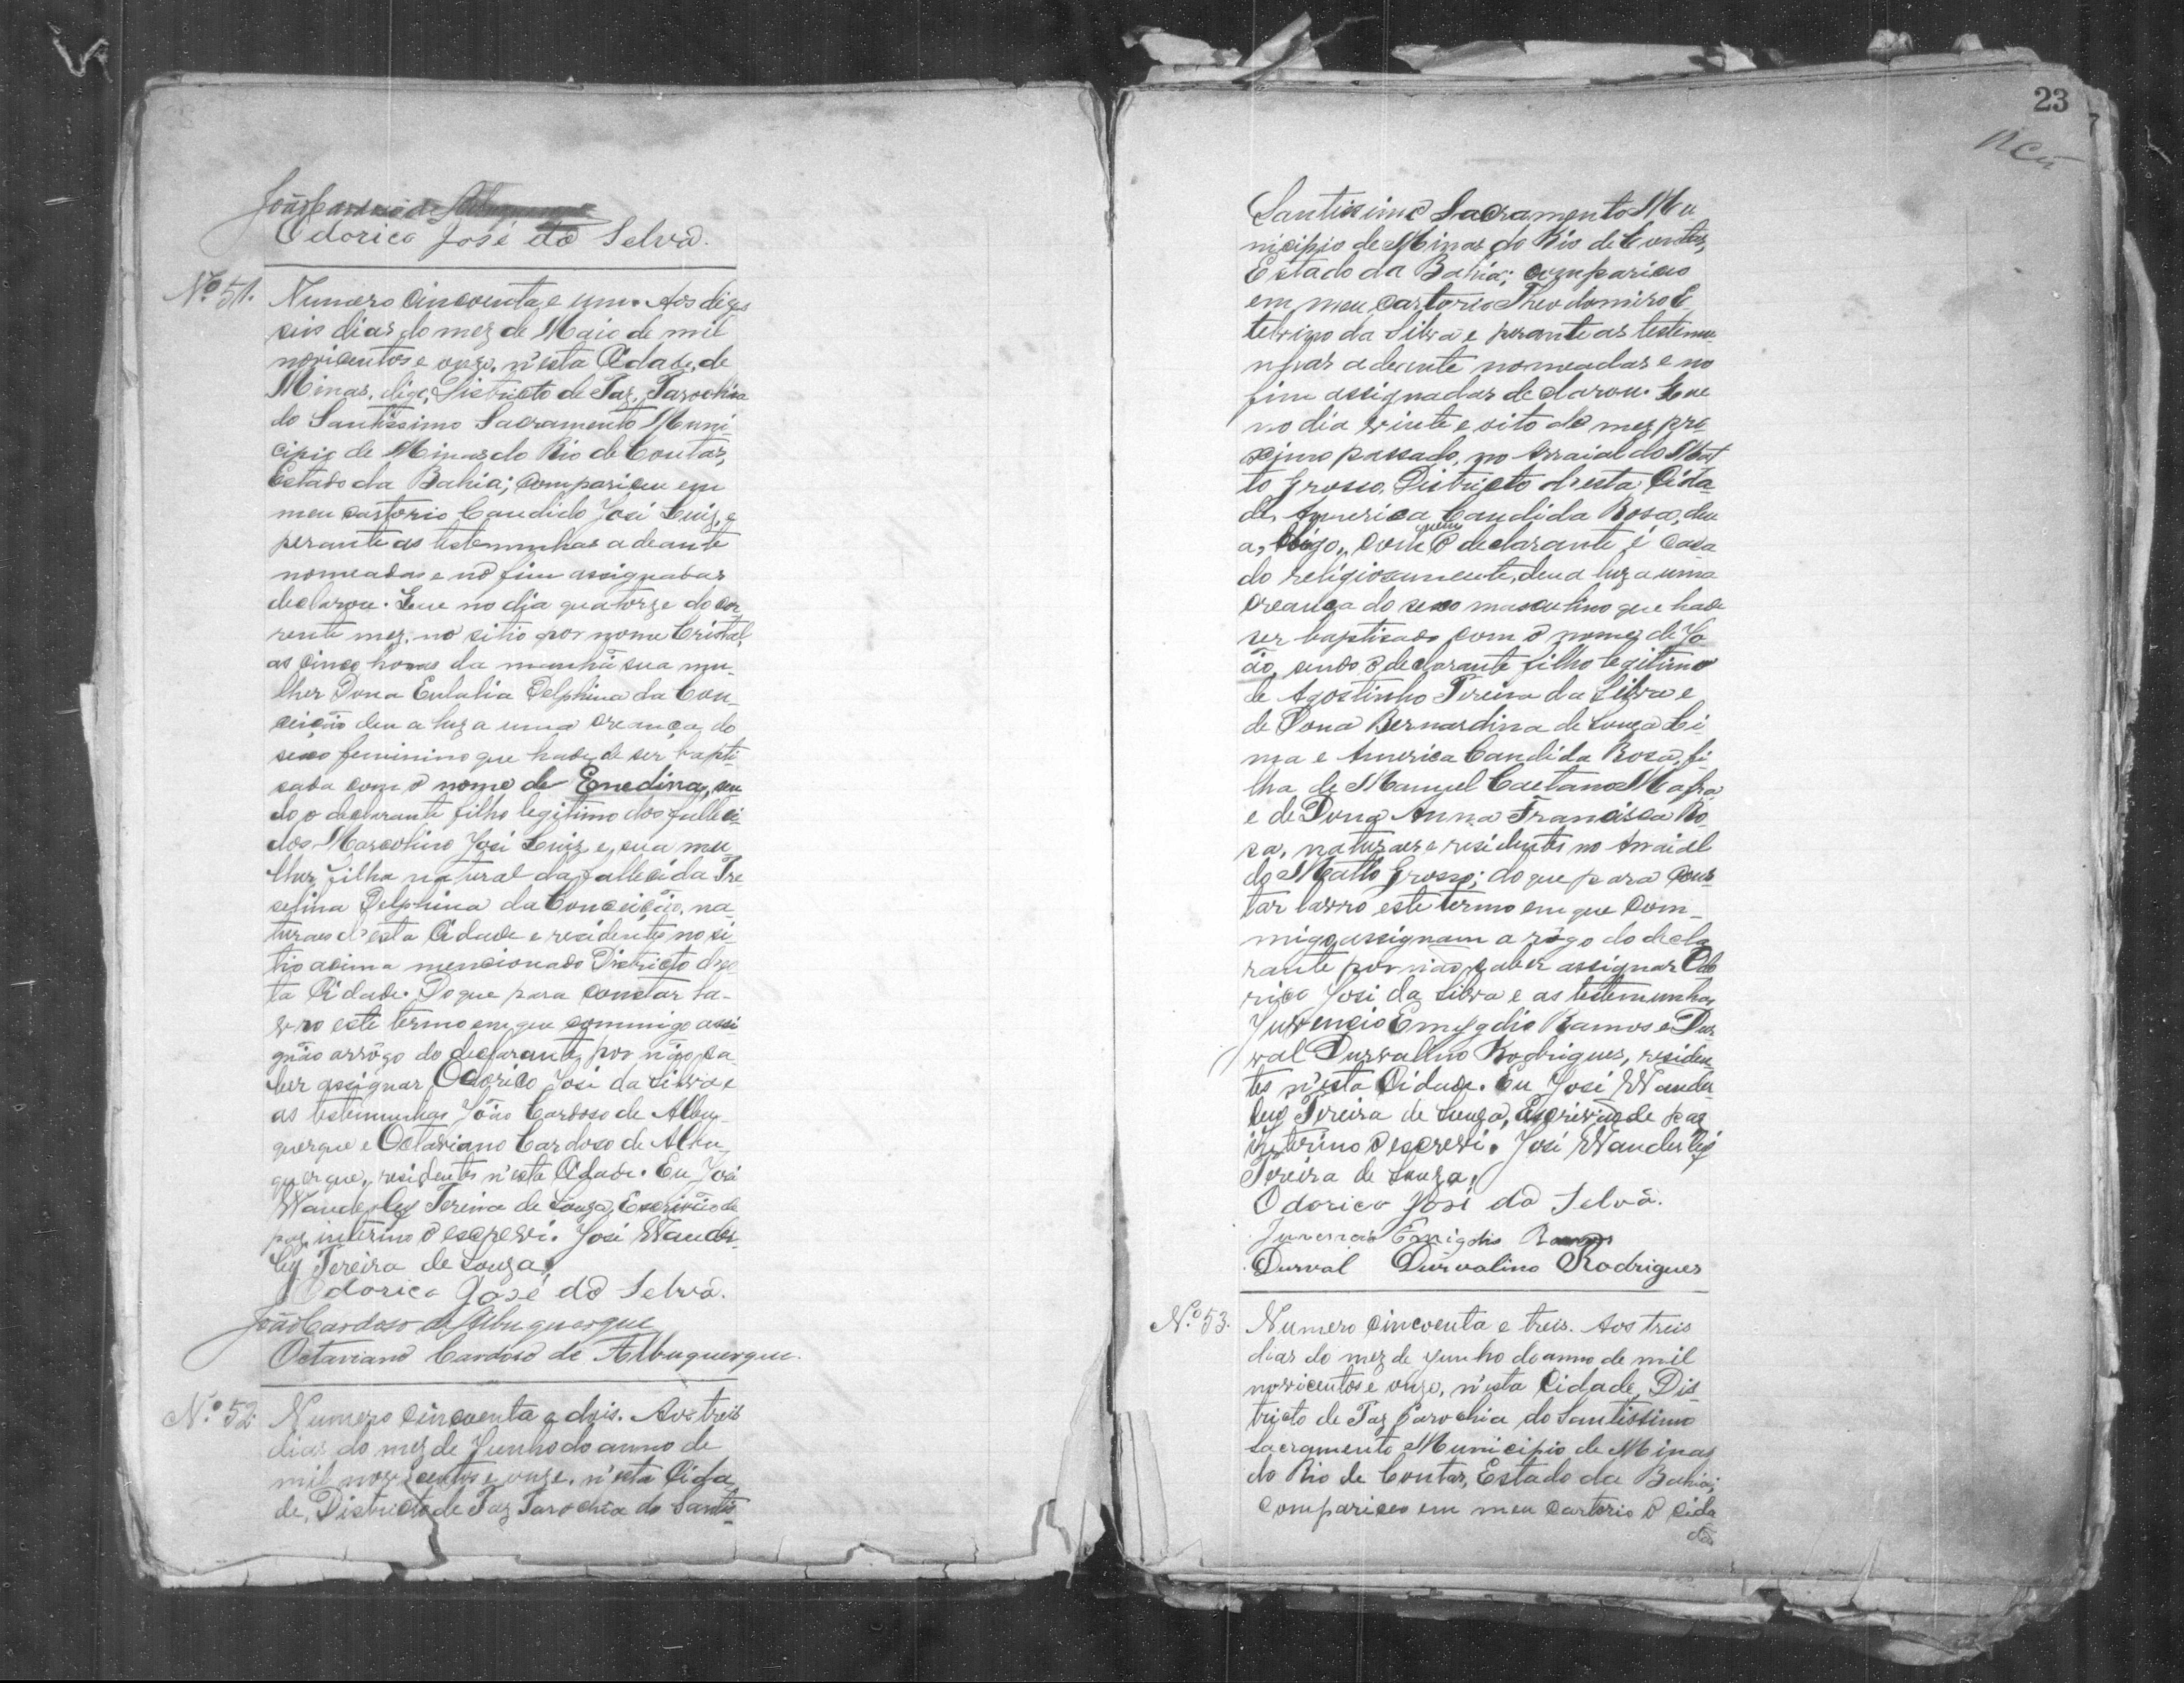 João Cardoso de Albuquerque
Odorico José da Selva.
Nº 51. Numero Cincoenta e um. Aos dizes
seis dias do mez de Maio de mil
novicentos e onze, n'esta Cidade, de
Minas, digo, Districto de Paz, Parochia
do Santissimo Sacramento Muni
cipio de Minas do Rio de Contas,
Estado da Bahia; compariceu em
meu cartorio Candido José Luiz, e
perante as testemunhas adeante
nomeadas e no fim assignadas
declarou. Que no dia quatorze do cor
rente mez, no sitio por nome Cristal,
as cinco horas da manhã sua mu-
lher Dona Eulalia Delphina da Con-
ceição deu a luz a uma creança do
sexo feminino que hade de ser bapti-
sada com o nome de Enedina, sen
do o declarante filho legitimo dos falleci-
dos Marcolino José Luiz e, sua mu
lher filha natural da fallecida Tre
selina Delphina da Conceição, na-
turaes d'esta Cidade e residentes no si-
tio acima mencionado Districto d'es
ta Cidade. Do que para constar la-
vro este termo em que commigo assi
gnão arrôgo do declarante, por não sa-
ber assignar Odorico José da Silva e
as testemunhas João Cardoso de Albu-
querque e Octaviano Cardoso de Albu-
querque, residentes n'esta Cidade. Eu José
Wanderley Pereira de Souza, Escrivão de
paz interino o escrevi. José Wander-
ley Pereira de Souza,
Odorico José da Selva.
João Cardoso de Albuquerque
Octaviano Cardoso de Albuquerque.
Nº 52. Numero Cincoenta e dois. Aos treis
dias do mez de Junho do anno de
mil novicentos e onze, n'esta Cida
de, Districto de Paz Parochia do Santis-
23
Santissimo Sacramento Mu
nicipio de Minas do Rio de Contas,
Estado da Bahia; compariceo
em meu cartorio Theodomiro E
telvino da Silva e perante as testemu-
nhas adeante nomeadas e no
fim assignadas declarou. Que
no dia vinte e oito do mez pro
ximo passado, no Arraial do Mat
to Grosso, Districto d'esta Cida-
de, America Candida Rosa, deu
a, digo, com quem o declarante é casa
do religiosamente, deu a luz a uma
creança do sexo masculino que hade
ser baptisado com o nome de Jo-
ão, sendo o declarante filho legitimo
de Agostinho Pereira da Silva e
de Dona Bernardina de Souza Li-
ma e America Candida Rosa, fi-
lha de Manuel Caetano Mafra
e de Dona Anna Francisca Ro-
sa, naturaes e residentes no Arraial
do Matto Grosso; do que para cons
tar lavro este termo em que com-
migo assignam a rôgo do decla
rante por não saber assignar Odo
rico José da Silva e as testemunhas
Juvencio Emygdio Ramos e Dur
val Durvalino Rodrigues, residen-
tes n'esta Cidade. Eu José Wander
ley Pereira de Souza, Escrivão de paz
interino o escrevi. José Wanderley
Pereira de Souza,
Odorico José da Selva.
Juvencio Emigdio Ramos
Durval Durvalino Rodrigues
Nº 53. Numero Cincoenta e treis. Aos treis
dias do mez de Junho do anno de mil
novicentos e onze, n'esta Cidade, Dis
tricto de Paz Parochia do Santissimo
Sacramento Municipio de Minas
do Rio de Contas, Estado da Bahia;
compariceo em meu cartorio o Cida
dão